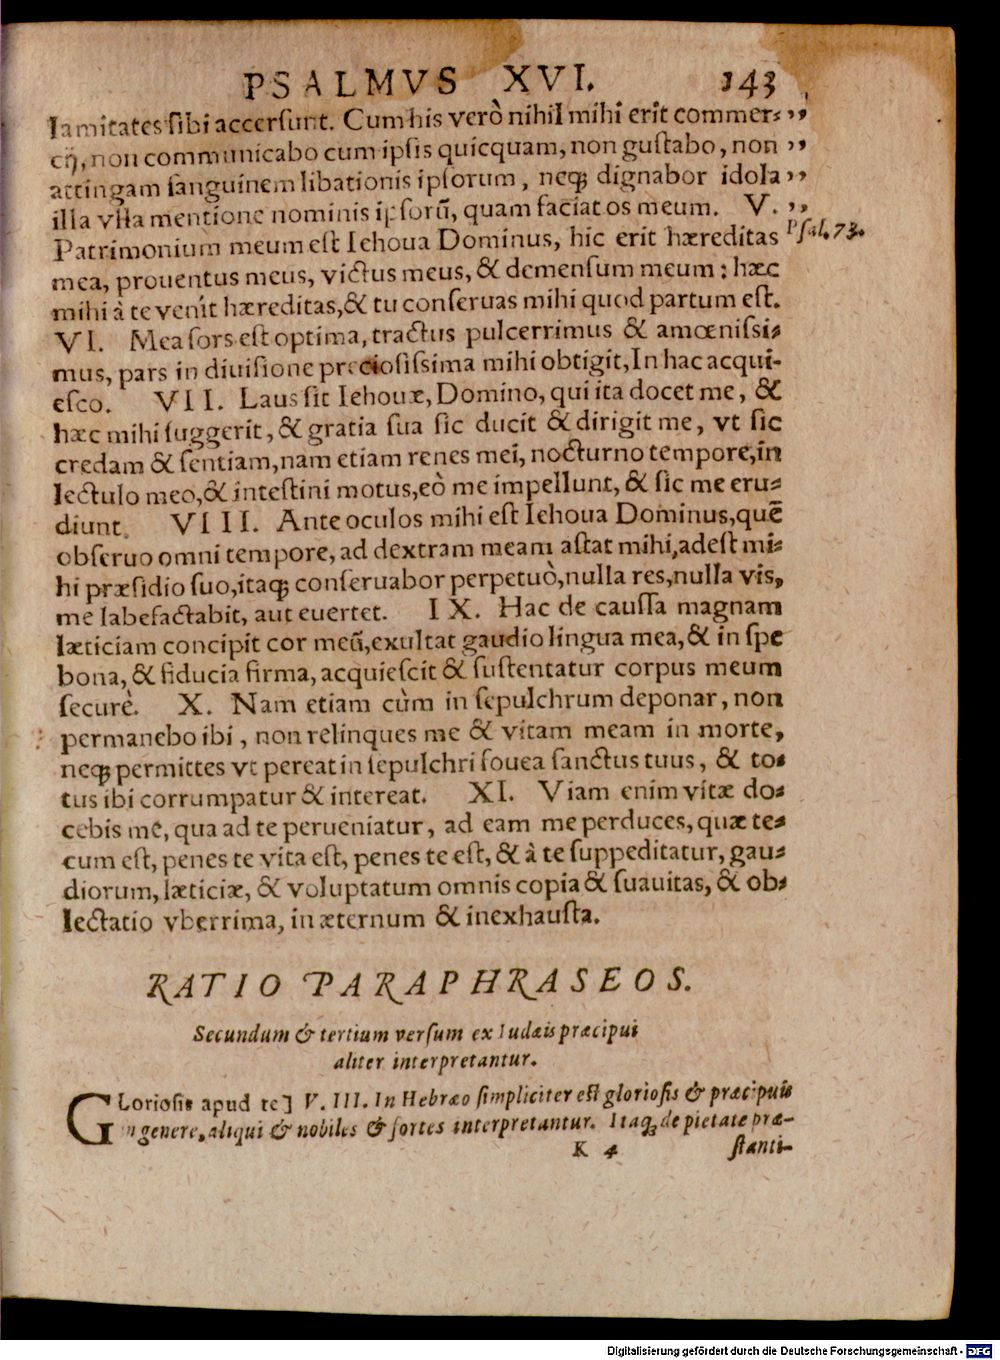 PSALMVS XVI. 143
lamitates sibi accersunt. Cum his verò nihil mihi erit commer- ,,
cij, non communicabo cum ipsis quicquam, non gustabo, non ,,
attingam sanguinem libationis ipsorum, neq; dignabor idola ,,
illa vlla mentione nominis ipsorũ, quam faciat os meum. V. ,,
Patrimonium meum est Iehoua Dominus, hic erit hæreditas Psal. 73.
mea, prouentus meus, victus meus, & demensum meum: hæc
mihi à te venit hæreditas, & tu conseruas mihi quod partum est.
VI. Mea sors est optima, tractus pulcerrimus & amœnissi-
mus, pars in diuisione preciosissima mihi obtigit, In hac acqui-
esco. VII. Laus sit Iehouæ, Domino, qui ita docet me, &
hæc mihi suggerit, & gratia sua sic ducit & dirigit me, vt sic
credam & sentiam, nam etiam renes mei, nocturno tempore, in
lectulo meo, & intestini motus, eò me impellunt, & sic me eru-
diunt. VIII. Ante oculos mihi est Iehoua Dominus, quẽ
obseruo omni tempore, ad dextram meam astat mihi, adest mi-
hi præsidio suo, itaq; conseruabor perpetuò, nulla res, nulla vis,
me labefactabit, aut euertet. IX. Hac de caussa magnam
læticiam concipit cor meũ, exultat gaudio lingua mea, & in spe
bona, & fiducia firma, acquiescit & sustentatur corpus meum
securè. X. Nam etiam cùm in sepulchrum deponar, non
permanebo ibi, non relinques me & vitam meam in morte,
neq; permittes vt pereat in sepulchri fouea sanctus tuus, & to-
tus ibi corrumpatur & intereat. XI. Viam enim vitæ do-
cebis me, qua ad te perueniatur, ad eam me perduces, quæ te-
cum est, penes te vita est, penes te est, & à te suppeditatur, gau-
diorum, læticiæ, & voluptatum omnis copia & suauitas, & ob-
lectatio vberrima, in æternum & inexhausta.
RATIO PARAPHRASEOS.
Secundum & tertium versum ex Iudæis præcipui
aliter interpretantur.
GLoriosis apud te] V. III. In Hebræo simpliciter est gloriosis & præcipuis
in genere, aliqui & nobiles & fortes interpretantur. Itaq; de pietate præ-
K 4 stanti-
Digitalisierung gefördert durch die Deutsche Forschungsgemeinschaft - DFG